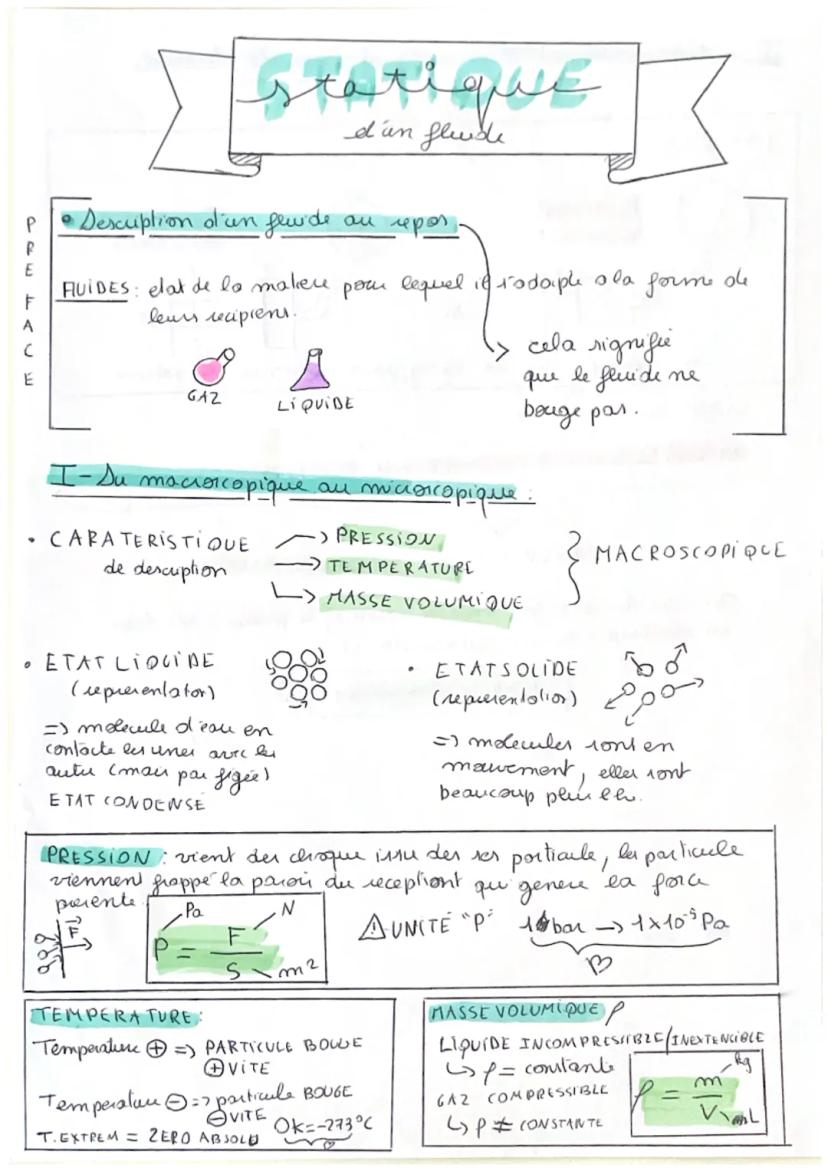 STATIQUE
statique
d'un fluide
PREFACE
• Description d'un fluide au repos
FLUIDES : etat de la matiere pour lequel il s'adapte a la forme de
leurs recipiens.
cela signifie
que le fluide ne
bouge pas.
GAZ
LiQUiDE
I - Du macroscopique au microscopique :
• CARATERISTIQUE
de description
-> PRESSION
-> TEMPERATURE
-> MASSE VOLUMIQUE
} MACROSCOPIQUE
• ETAT LIQUIDE
(representation)
=> molecule d'eau en
contacte les unes avec les
autre (mais pas figée)
ETAT CONDENSÉ
• ETAT SOLIDE
(representation)
=> molecules sont en
mouvement, elles sont
beaucoup plus
PRESSION : vient des choque issu des ses particule, les particule
viennent frappé la paroi du receptiont qui genere la force
presente.
F
Pa
N
P = F / S
m²
⚠ UNITÉ "P"
bar -> 1 x 10⁻⁵ Pa
TEMPERATURE :
Temperature ⊕ => PARTICULE BOUGE
⊕ VITE
Temperature ⊖ => particule BOUGE
⊖ VITE
T. EXTREM = ZERO ABSOLU
0k = -273°C
MASSE VOLUMIQUE ρ
LIQUIDE INCOMPRESSIBLE/INEXTENCIBLE
↳ ρ = constante
GAZ COMPRESSIBLE
↳ ρ ≠ CONSTANTE
ρ = m / V
kg